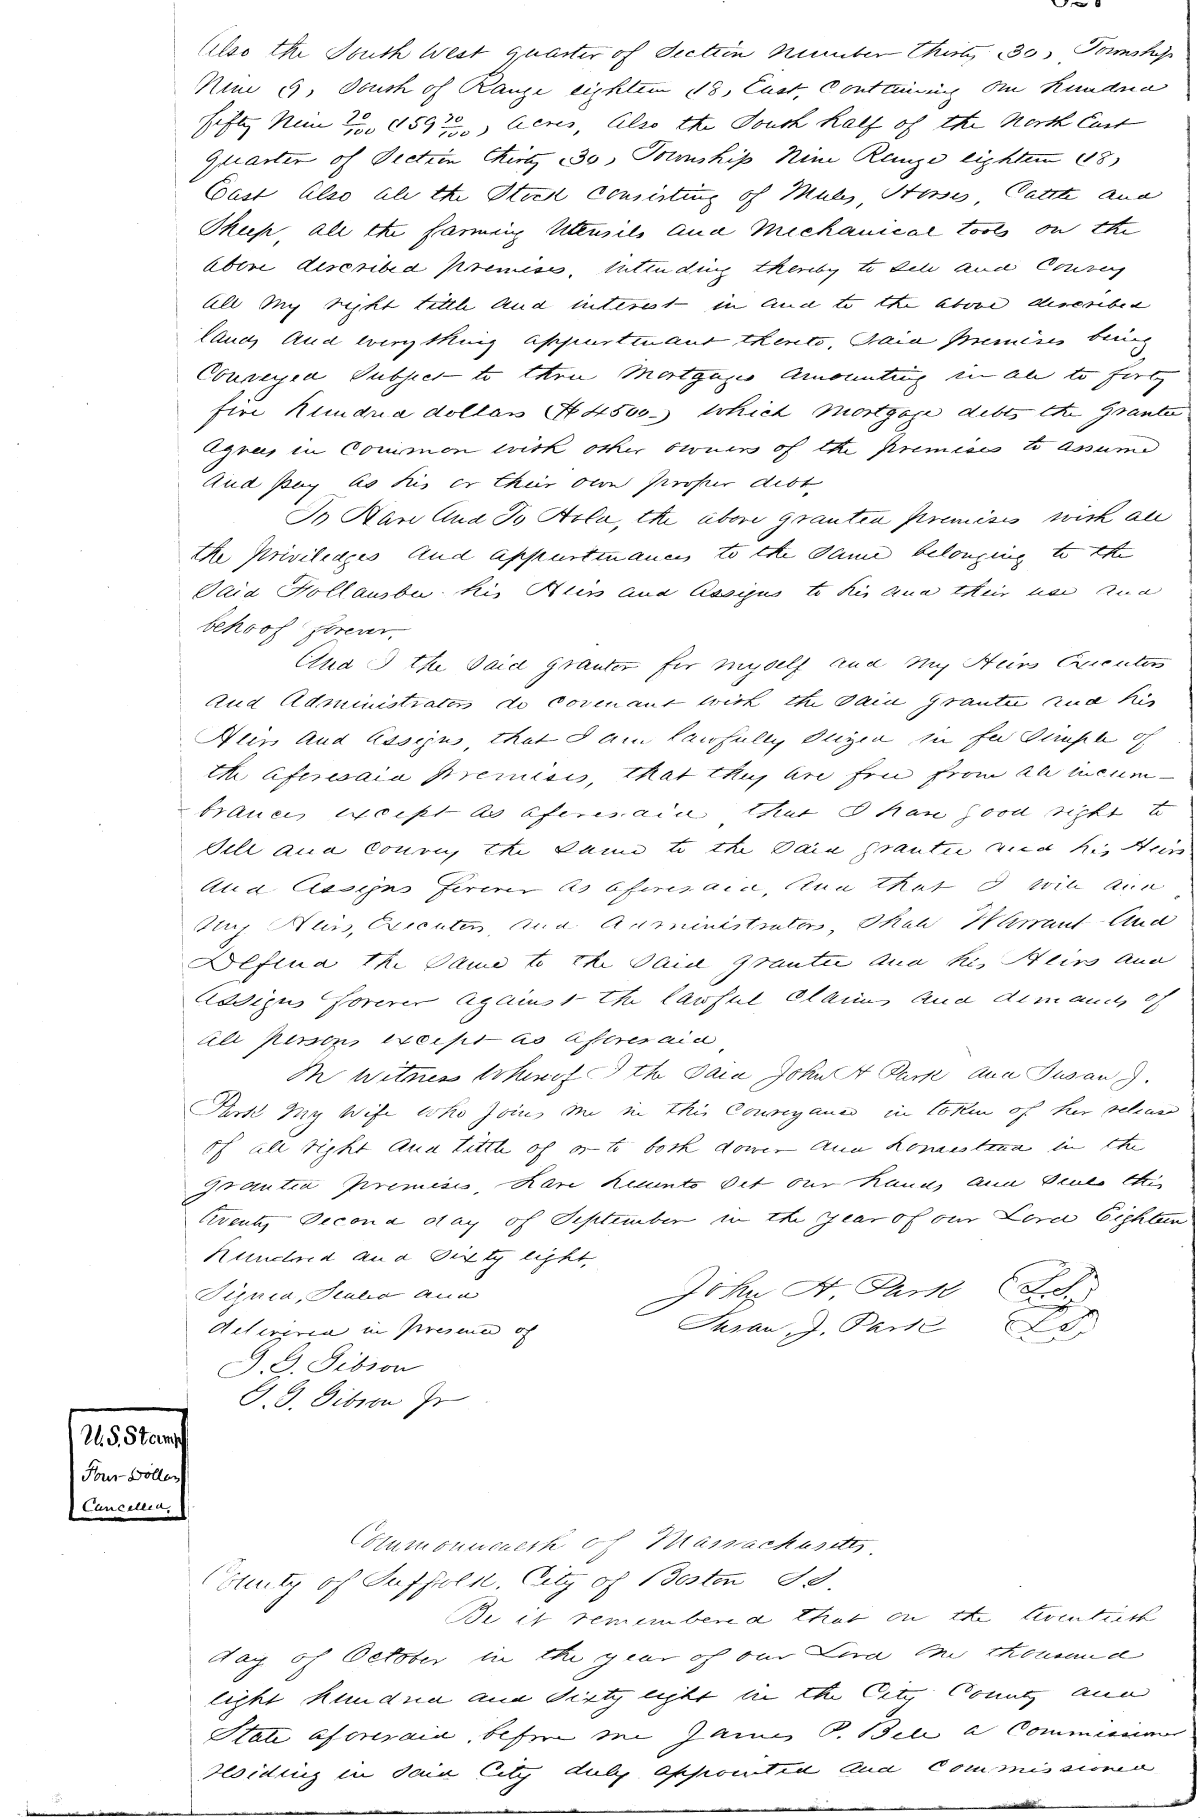 Also the South West quarter of Section Number Thirty (30), Township
Nine (9) South of Range eighteen (18) East, Containing One Hundred
fifty Nine 70/100 (159 70/100) Acres, Also the South half of the North East
quarter of Section thirty (30) Township Nine Range eighteen (18)
East Also all the Stock Consisting of Mules, Horses, Cattle and
Sheep, all the farming Utensils and Mechanical tools on the
above described premises, intending thereby to sell and Convey
all my right tittle and interest in and to the above described
lands and every thing appurtenant thereto, Said premises being
Conveyed Subject to three Mortgages amounting in all to forty
five hundred dollars ($4500-) which mortgage debts the Grantee
agrees in Common with other owners of the premises to assume
and pay as his or their own proper debt,
To Have And To Hold, the above granted premises with all
the priviledges and appurtenances to the Same belonging to the
Said Follansbee his Heirs and Assigns to his and their use and
behoof forever,
And I the Said grantor for myself and my Heirs Executors
and Administrators do covenant with the Said grantee and his
Heirs and Assigns, that I am lawfully Seized in fee Simple of
the aforesaid premises, that they are free from all incum-
brances except as aforesaid, that I have good right to
Sell and convey the Same to the Said grantee and his Heirs
and Assigns forever as aforesaid, And that I will and
my Heirs, Executors, and Administrators, Shall Warrant And
Defend the Same to the Said grantee and his Heirs and
Assigns forever against the lawful Claims and demands of
all persons except as aforesaid,
In Witness Whereof I the Said John H Park and Susan J.
Park my Wife who joins me in this Conveyance in token of her release
of all right and tittle of or to both dower and homestead in the
granted premises, have hereunto Set our hands and Seals this
twenty Second day of September in the year of our Lord Eighteen
hundred and Sixty eight,
Signed, Sealed and John H. Park (L.S.)
delivered in presence of Susan, J. Park (LS)
G. G. Gibson
G. G. Gibson Jr
U.S. Stamp
Four Dollars
Cancelled.
Commonwealth of Massachusetts.
County of Suffolk. City of Boston S.S.
Be it remembered that on the twentieth
day of October in the year of our Lord One thousand
eight hundred and Sixty eight in the City County and
State aforesaid, before me James P. Bell a Commissioner
residing in Said City duly appointed and Commissioned